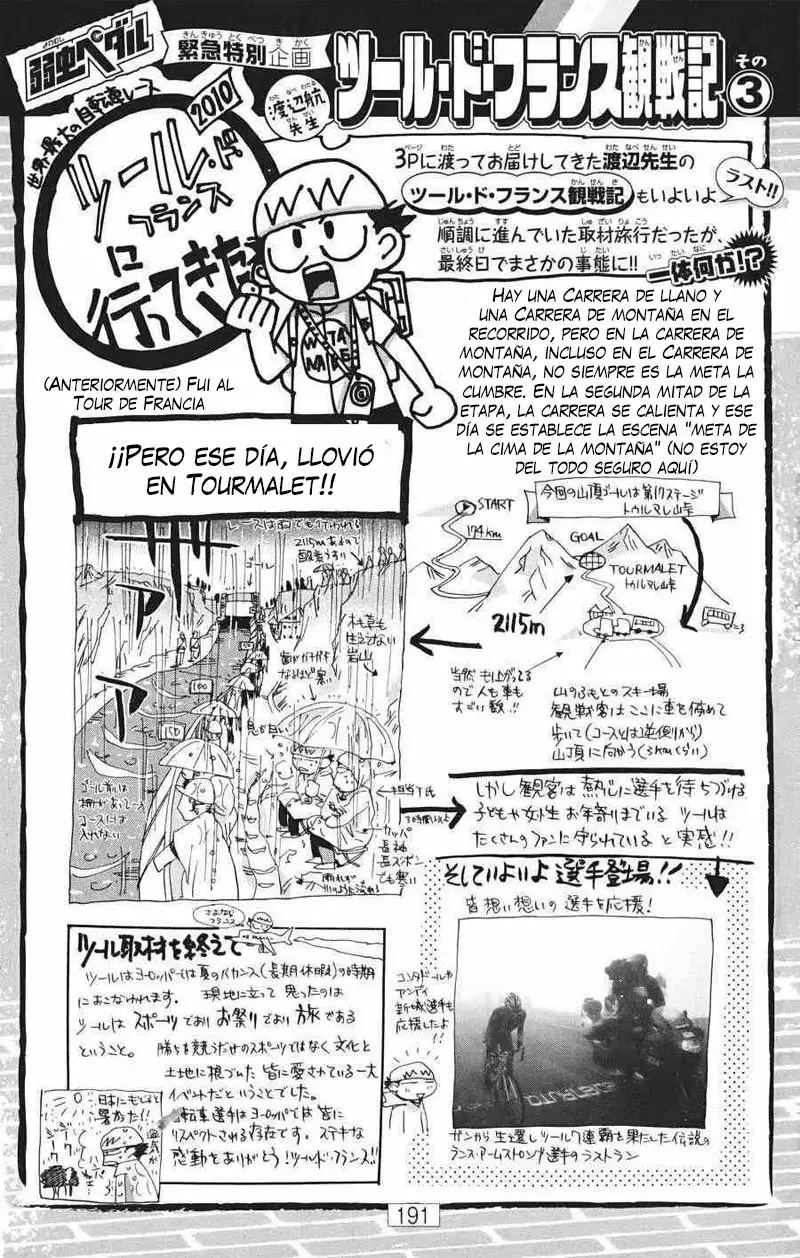 弱虫ペダル
緊急特別企画
渡辺航先生
ツール・ド・フランス観戦記
その3
世界最大の自転車レース
2010
ツール・ド
フランス
に
行ってきた
3Pに渡ってお届けしてきた渡辺先生の
ツール・ド・フランス観戦記もいよいよ
ラスト!!
順調に進んでいた取材旅行だったが、
最終日でまさかの事態に!!
一体何が!?
Hay una Carrera de llano y
una Carrera de montaña en el
recorrido, pero en la carrera de
montaña, incluso en el Carrera de
montaña, no siempre es la meta la
cumbre. En la segunda mitad de la
etapa, la carrera se calienta y ese
día se establece la escena "meta de
la cima de la montaña" (no estoy
del todo seguro aquí)
(Anteriormente) Fui al
Tour de Francia
¡¡Pero ese día, llovió
en Tourmalet!!
START
174km
今回の山頂ゴールは第17ステージ
トゥルマレ山峠
GOAL
TOURMALET
トゥルマレ山峠
2115m
当然 も上がってる
ので人も車も
すごい数!!
山のふもとのスキー場
観戦客はここに車を停めて
歩いて(コースとは逆側から)
山頂に向かう(3kmくらい)
レースは雨でも行われる
2115mあるので
酸素うすい
ゴール
木も草も
生えてない
岩山
歯がガチガチ
なるほど寒い
息が白い
100
150
ゴール前は
柵があってレース
コースには
入れない
担当T氏
3時間以上
カッパ
長袖
長ズボン
でも寒い
しかし観客は熱心に選手を待ちつづける
子どもや女性 お年寄りまでいる ツールは
たくさんのファンに守られている と実感!!
そしていよいよ選手登場!!
皆想い想いの選手を応援!
コンタドールや
アンディ
新城選手も
応援したよ!!
ガンから生還しツール7連覇を果たした伝説の
ランス・アームストロング選手のラストラン
さよなら
フランス
ツール取材を終えて
ツールはヨーロッパでは夏のバカンス(長期休暇)の時期
におこなわれます。 現地に立って思ったのは
ツールは スポーツであり お祭りであり 旅である
ということ。 勝ちを競うだけのスポーツではなく文化と
土地に根づいた皆に愛されている一大
イベントだということでした。
自転車選手はヨーロッパでは皆に
リスペクトされる存在です。 ステキな
感動をありがとう!ツール・ド・フランス!!
日本にもどると
暑かった!!
湿気が
191